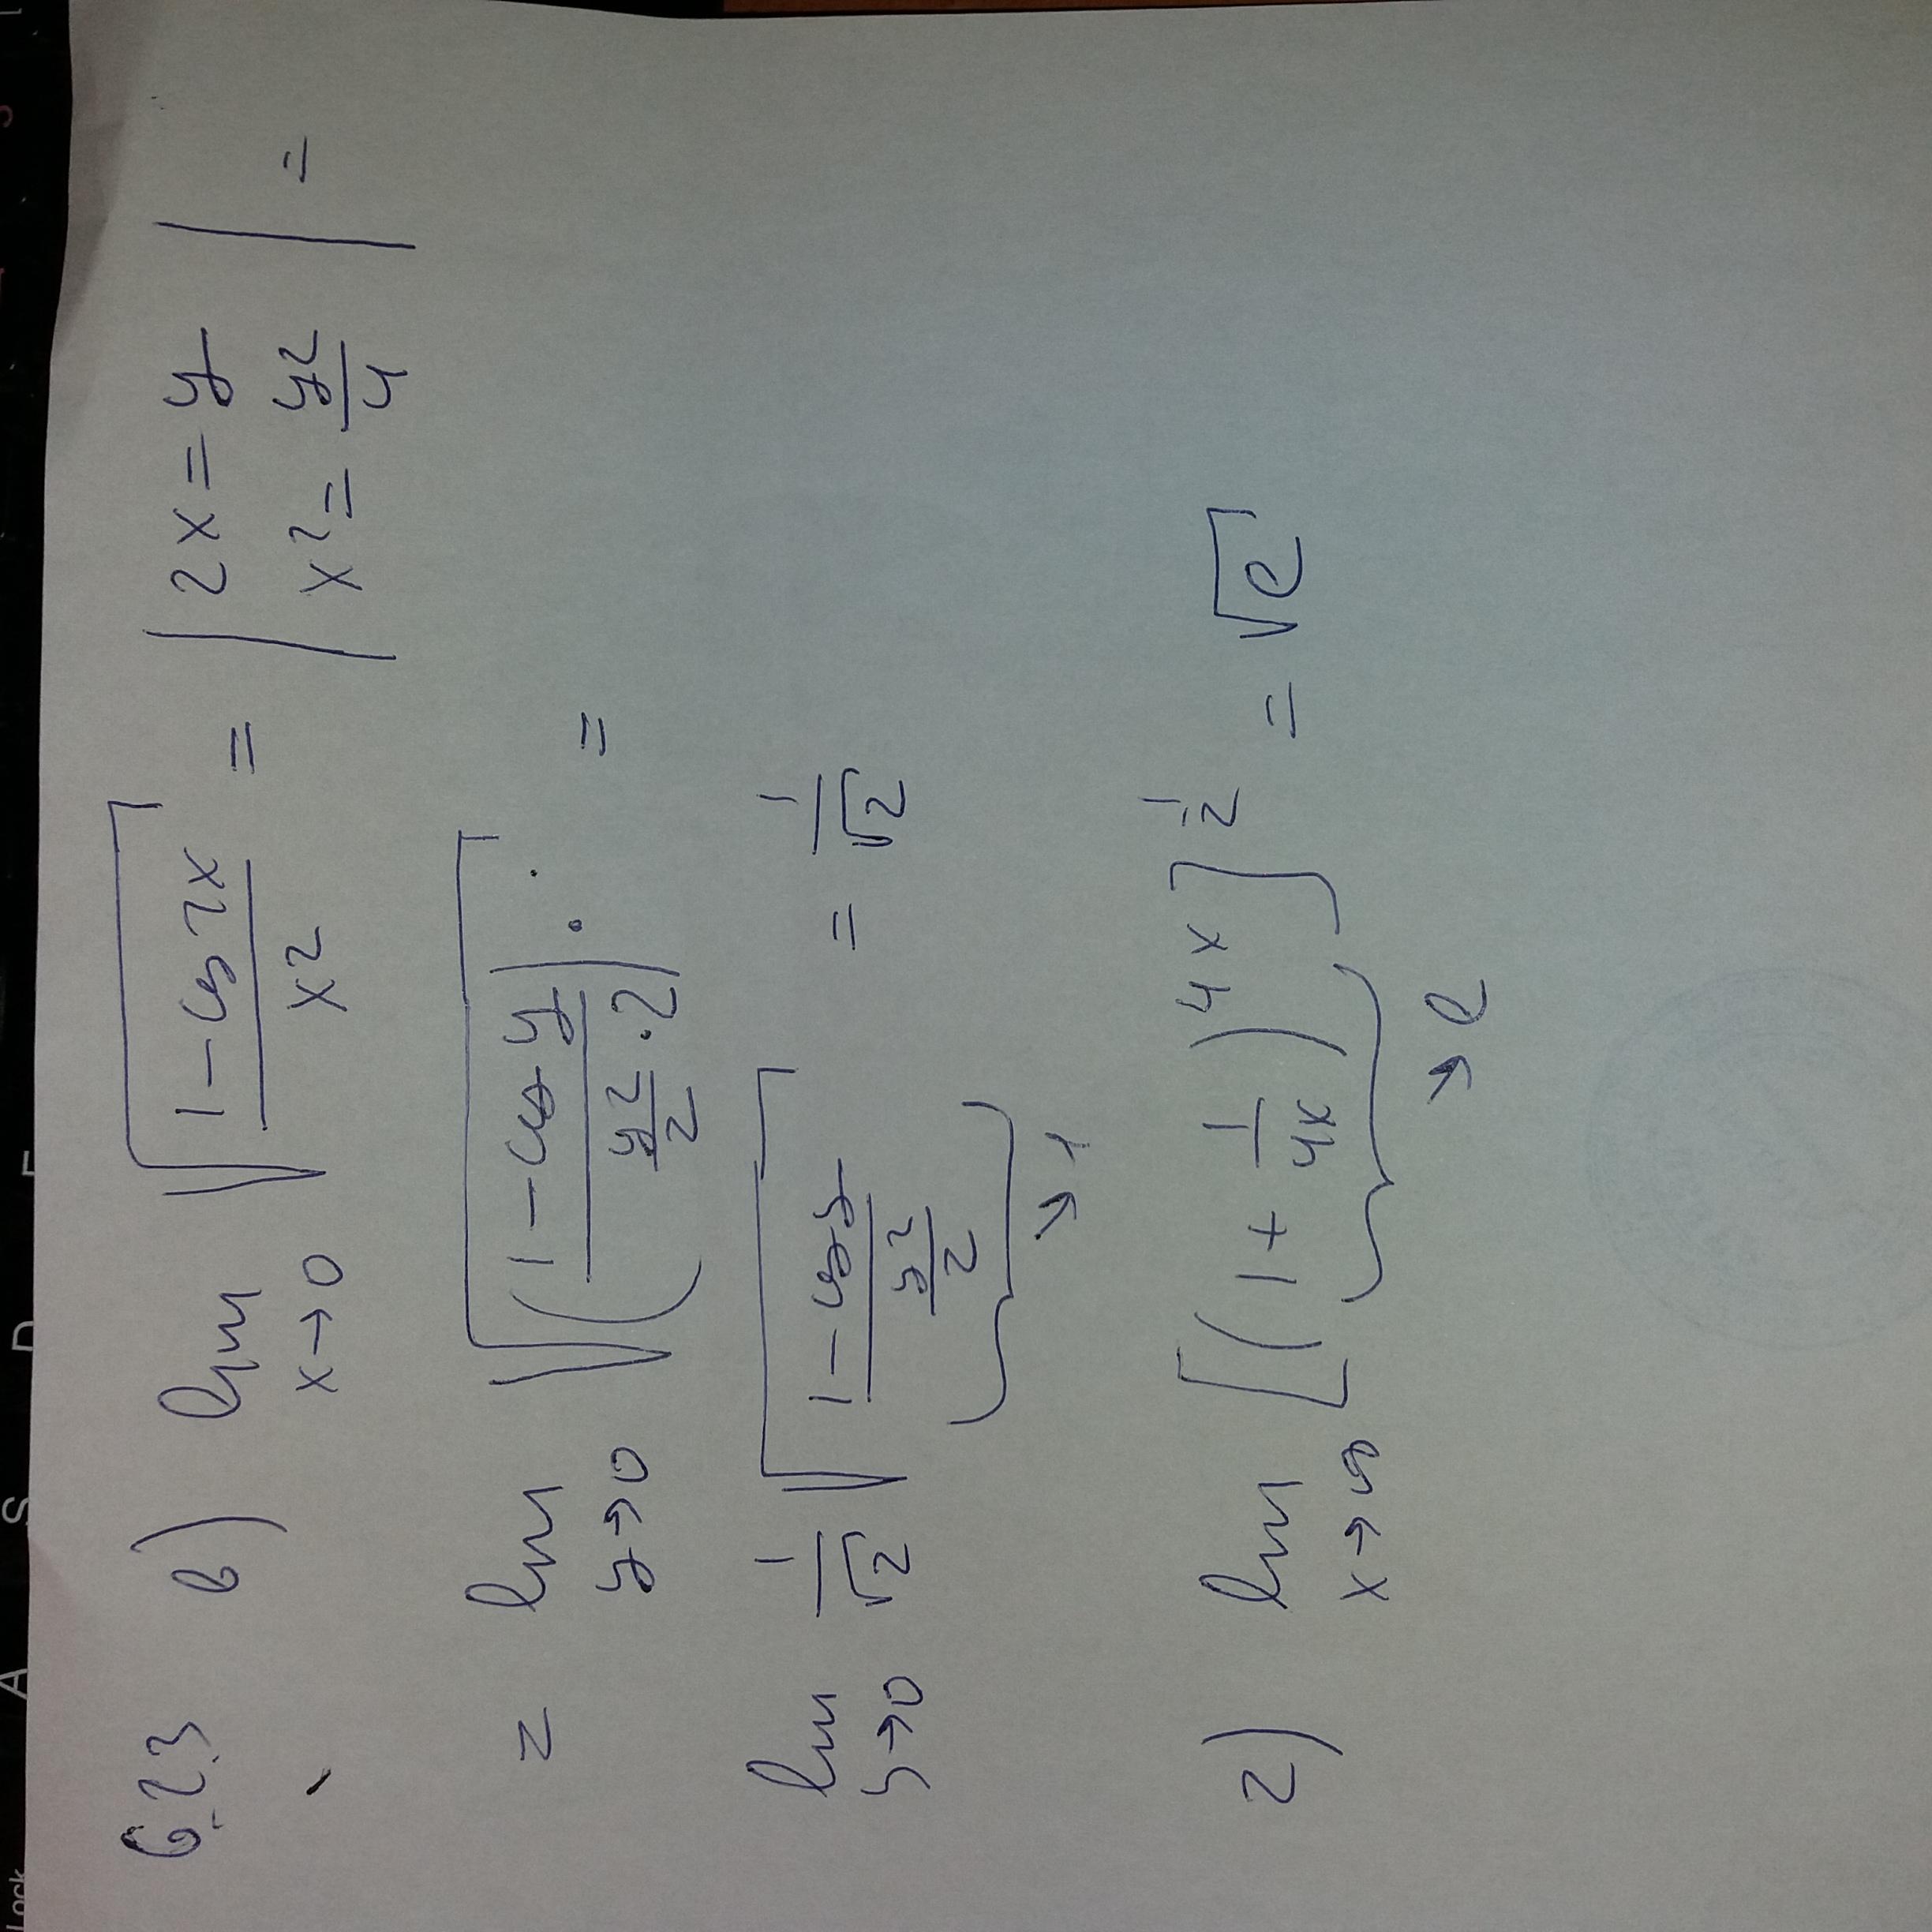 6.23 в) lim x→0 √((1 - cos 2x)/x²) = | 2x = y x² = y²/4 | =
= lim y→0 √((1 - cos y)/(y²/2 · 2)) · =
lim y→0 1/√2 √((1 - cos y)/(y²/2)) = 1/√2
→ 1
г) lim x→∞ [(1 + 1/4x)^4x]^1/2 = √e
→ e
Lock A S D F